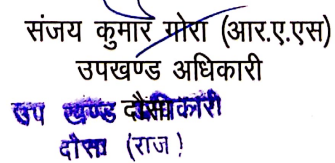 संजय कुमार गोरा (आर.ए.एस)
उपखण्ड अधिकारी
दौसा
उप खण्ड अधिकारी
दौसा (राज)